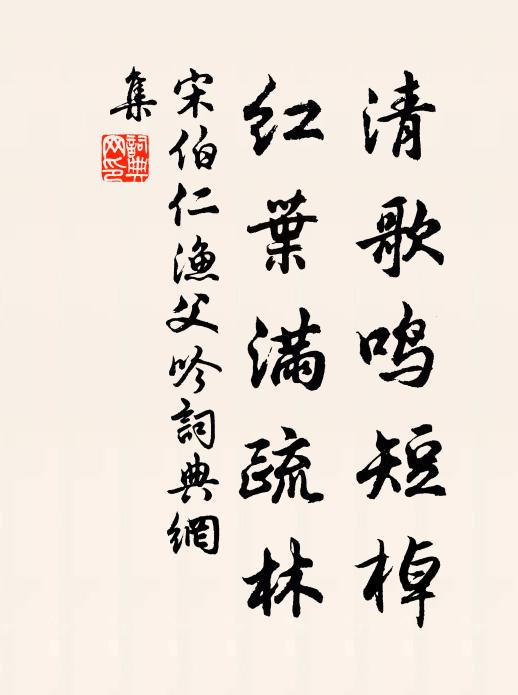 清歌鸣短棹
红叶满疏林
宋伯仁渔父吟詞典網
集
詞典网印